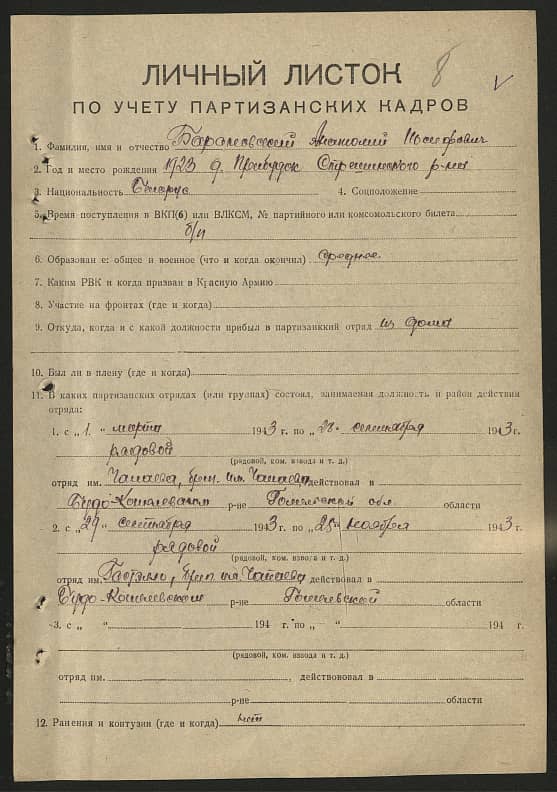 8
V
ЛИЧНЫЙ ЛИСТОК
ПО УЧЕТУ ПАРТИЗАНСКИХ КАДРОВ
1. Фамилия, имя и отчество Барановский Анатолий Иосифович
2. Год и место рождения 1923 д. Прибудок Стрешинского р-на
3. Национальность Беларус 4. Соцположение
5. Время поступления в ВКП(б) или ВЛКСМ, № партийного или комсомольского билета
б/п
6. Образован е: общее и военное (что и когда окончил) среднее
7. Каким РВК и когда призван в Красную Армию
8. Участие на фронтах (где и когда)
9. Откуда, когда и с какой должности прибыл в партизанкий отряд из дома
10. Был ли в плену (где и когда)
11. В каких партизанских отрядах (или группах) состоял, занимаемая должность и район действия
отряда:
1. с „1„ марта 1943 г. по „28„ сентября 1943 г.
рядовой
(рядовой, ком. взвода и т. д.)
отряд им. Чапаева, бриг. им. Чапаева, действовал в
Будо-Кошелевском р-не Гомельской обл. области
2. с „29„ сентября 1943 г. по „25„ ноября 1943 г.
рядовой
(рядовой, ком. взвода и т. д.)
отряд им. Гастелло, бриг им. Чапаева действовал в
Будо-Кошелевском р-не Гомелевской области
3. с „ “ 194 г. по „ “ 194 г.
(рядовой, ком. взвода и т. д.)
отряд им. , действововал в
р-не области
12. Ранения и контузии (где и когда) нет